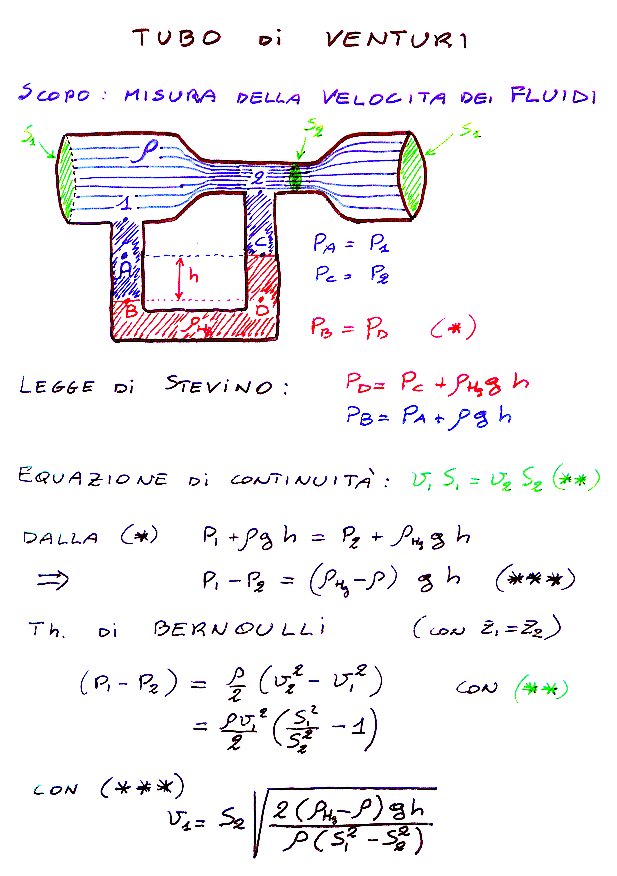 TUBO di VENTURI
SCOPO: MISURA DELLA VELOCITA DEI FLUIDI
S₁ S₂ S₁
ρ
1 2
A C
h
B D
ρHg
PA = P1
PC = P2
PB = PD (*)
LEGGE di STEVINO: PD = PC + ρHg g h
PB = PA + ρ g h
EQUAZIONE di CONTINUITÀ: v₁ S₁ = v₂ S₂ (**)
DALLA (*) P₁ + ρ g h = P₂ + ρHg g h
⇒ P₁ - P₂ = (ρHg - ρ) g h (***)
Th. di BERNOULLI (CON z₁ = z₂)
(P₁ - P₂) = ρ/2 (v₂² - v₁²) CON (**)
= ρv₁²/2 (S₁²/S₂² - 1)
CON (***)
v₁ = S₂ √(2 (ρHg - ρ) g h / ρ (S₁² - S₂²))